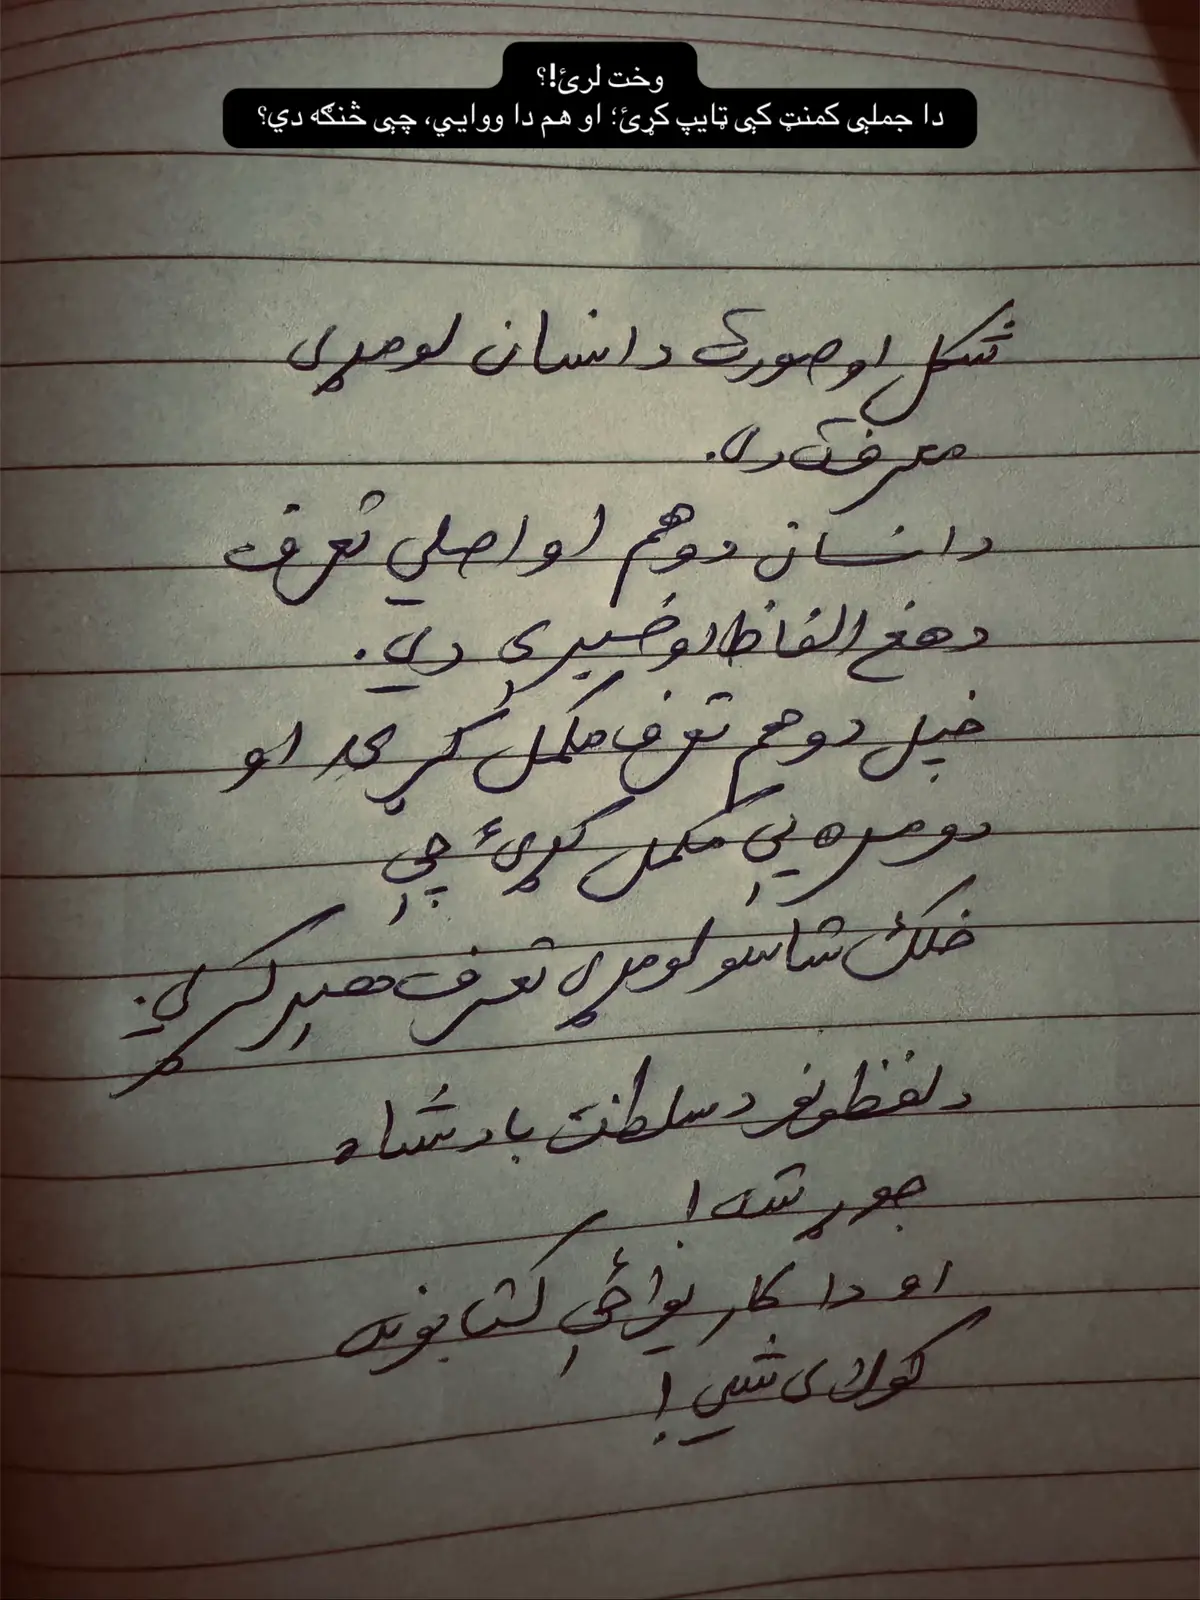 وخت لرئ!؟
دا جملې کمنټ کې ټایپ کړئ؛ او هم دا ووایي، چې څنګه دي؟
شکل او صورت د انسان لومړی
معرفت دی.
د انسان دوهم او اصلي تعرف
د هغه الفاظ او خبرې دي.
خپل دوهم تعرف مکمل کړئ او
دومره یې مکمل کړئ چې
خلک ستاسو لومړی تعرف هېر کړي.
د لفظونو د سلطنت بادشاه
جوړ شه!
او دا کار یواځې کتابونه
کولای شي!